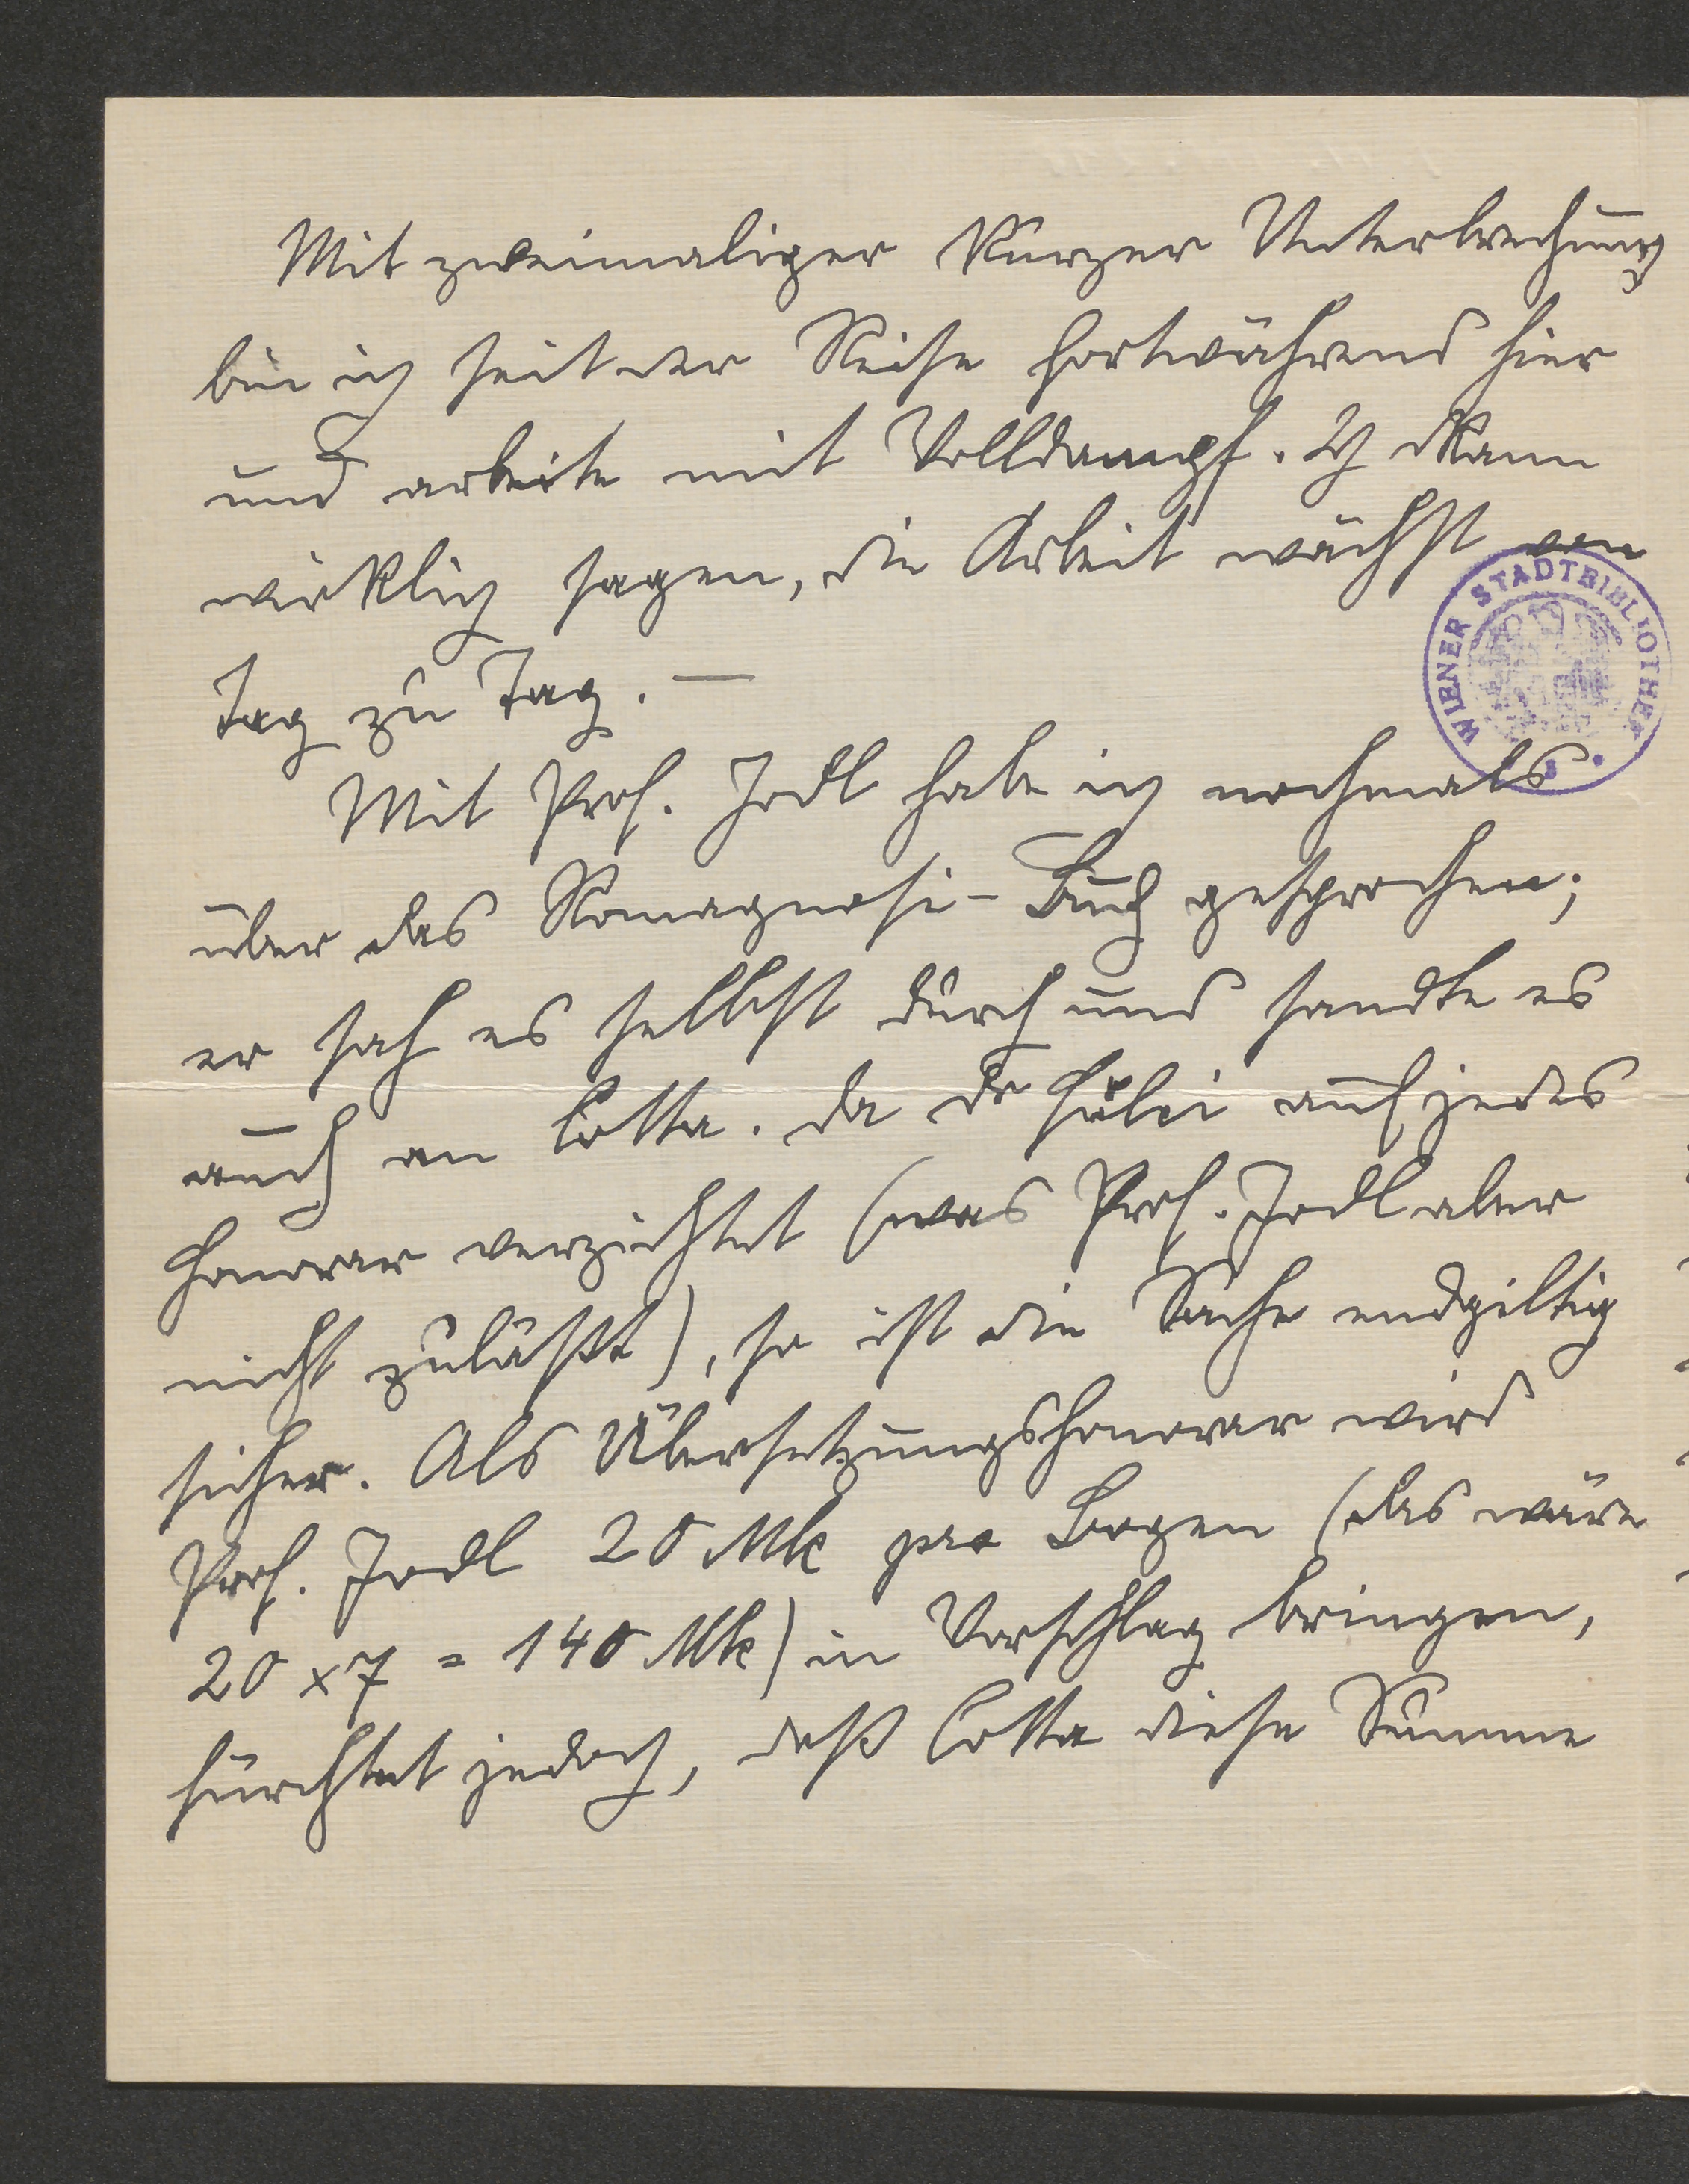 Mit zweimaliger kurzer Unterbrechung
bin ich seit der Reise fortwährend hier
und arbeite mit Volldampf. Ich kann
wirklich sagen, die Arbeit wächst von
Tag zu Tag. —
WIENER STADTBIBLIOTHEK
Mit Prof. Jodl habe ich nochmals
über das Romagnosi-Buch gesprochen;
er sah es selbst durch und sandte es
auch an Cotta. Da Dr auf jedes
Honorar verzichtet (was Prof. Jodl aber
nicht zuläßt), so ist die Sache endgiltig
sicher. Als Übersetzungshonorar wird
Prof. Jodl 20 Mk pro Bogen (das wäre
20 x 7 = 140 Mk) in Vorschlag bringen,
fürchtet jedoch, daß Cotta diese Summe